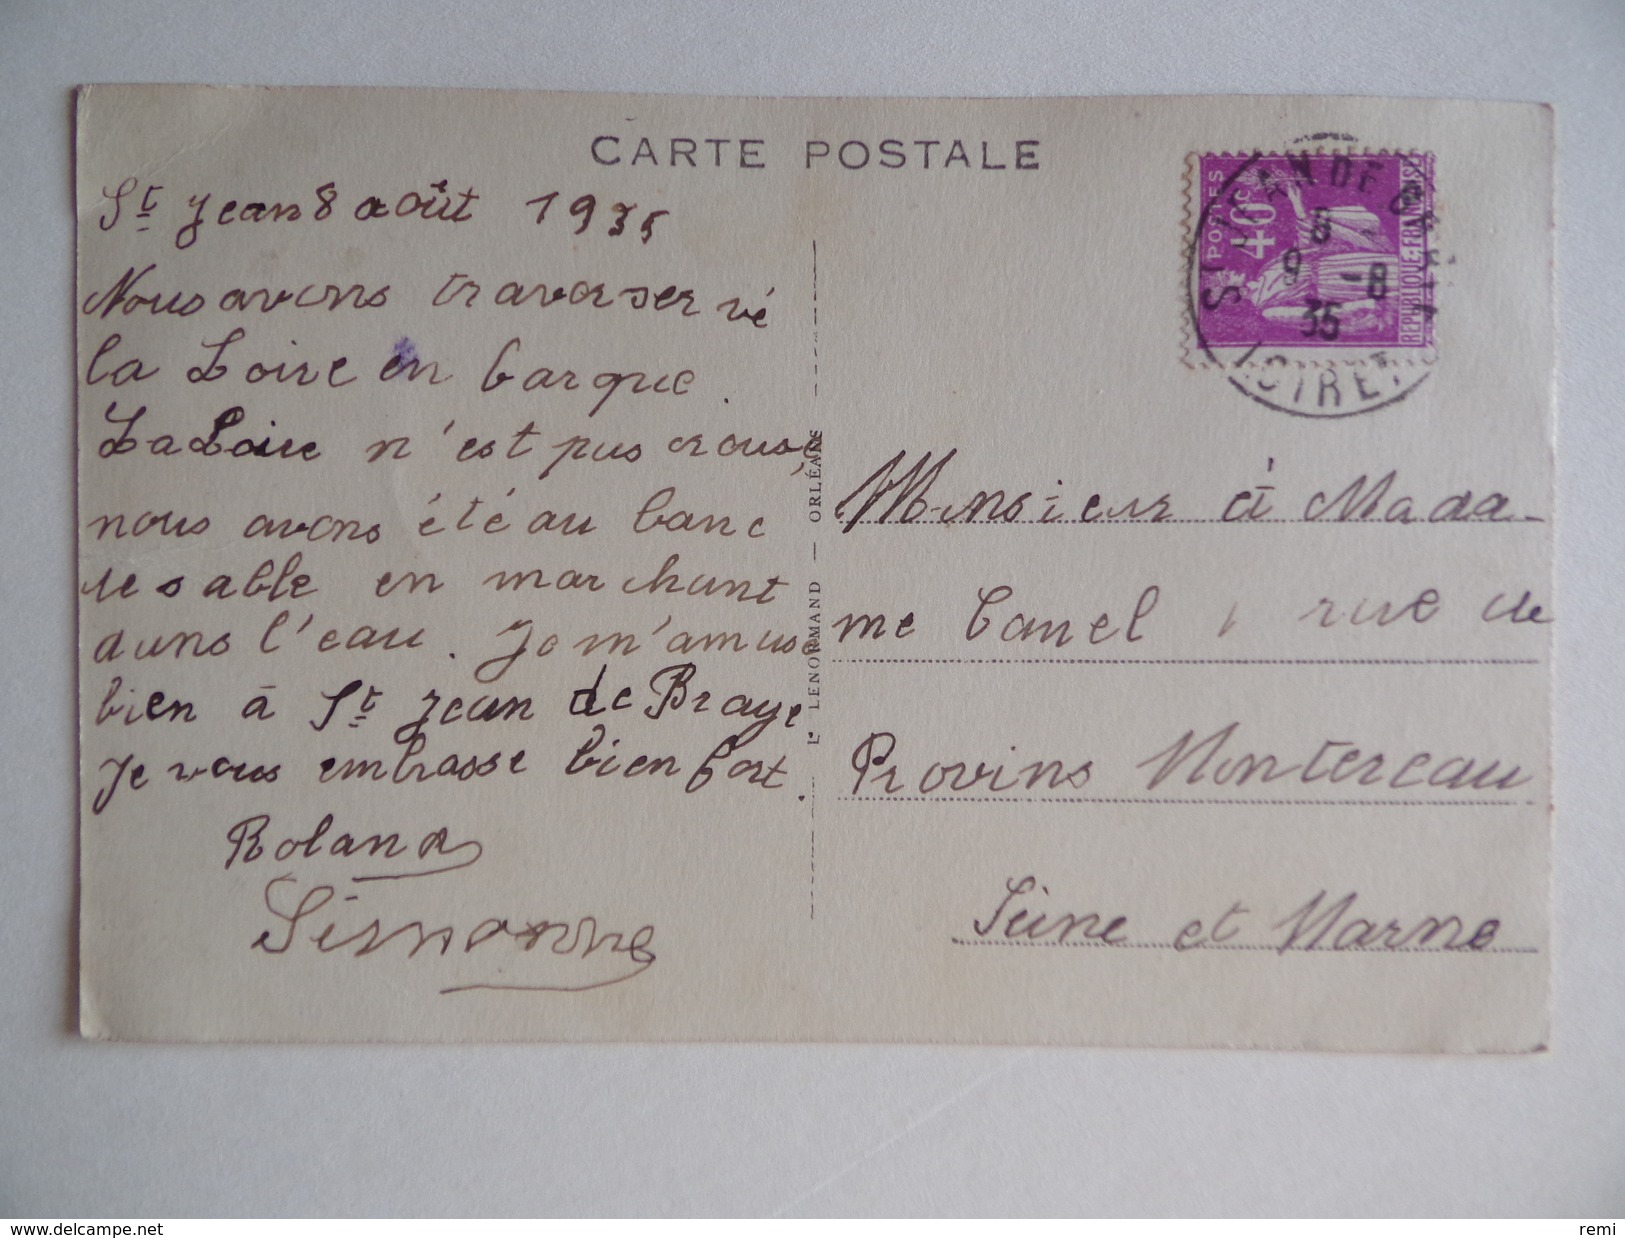 CARTE POSTALE
St Jean 8 août 1935
Nous avons traverser vé
la Loire en barque.
La Loire n'est pas creuse,
nous avons été au banc
de sable en marchant
dans l'eau. Je m'amuse
bien à St Jean de Braye
Je vous embrasse bien fort.
Roland
Simonne
L. LENORMAND — ORLÉANS
POSTES
40c
REPUBLIQUE FRANÇAISE
ST JEAN DE BRAYE
8
9 -8
35
LOIRET
Monsieur et Mada-
me Canel 1 rue de
Provins Montereau
Seine et Marne
www.delcampe.net
remi